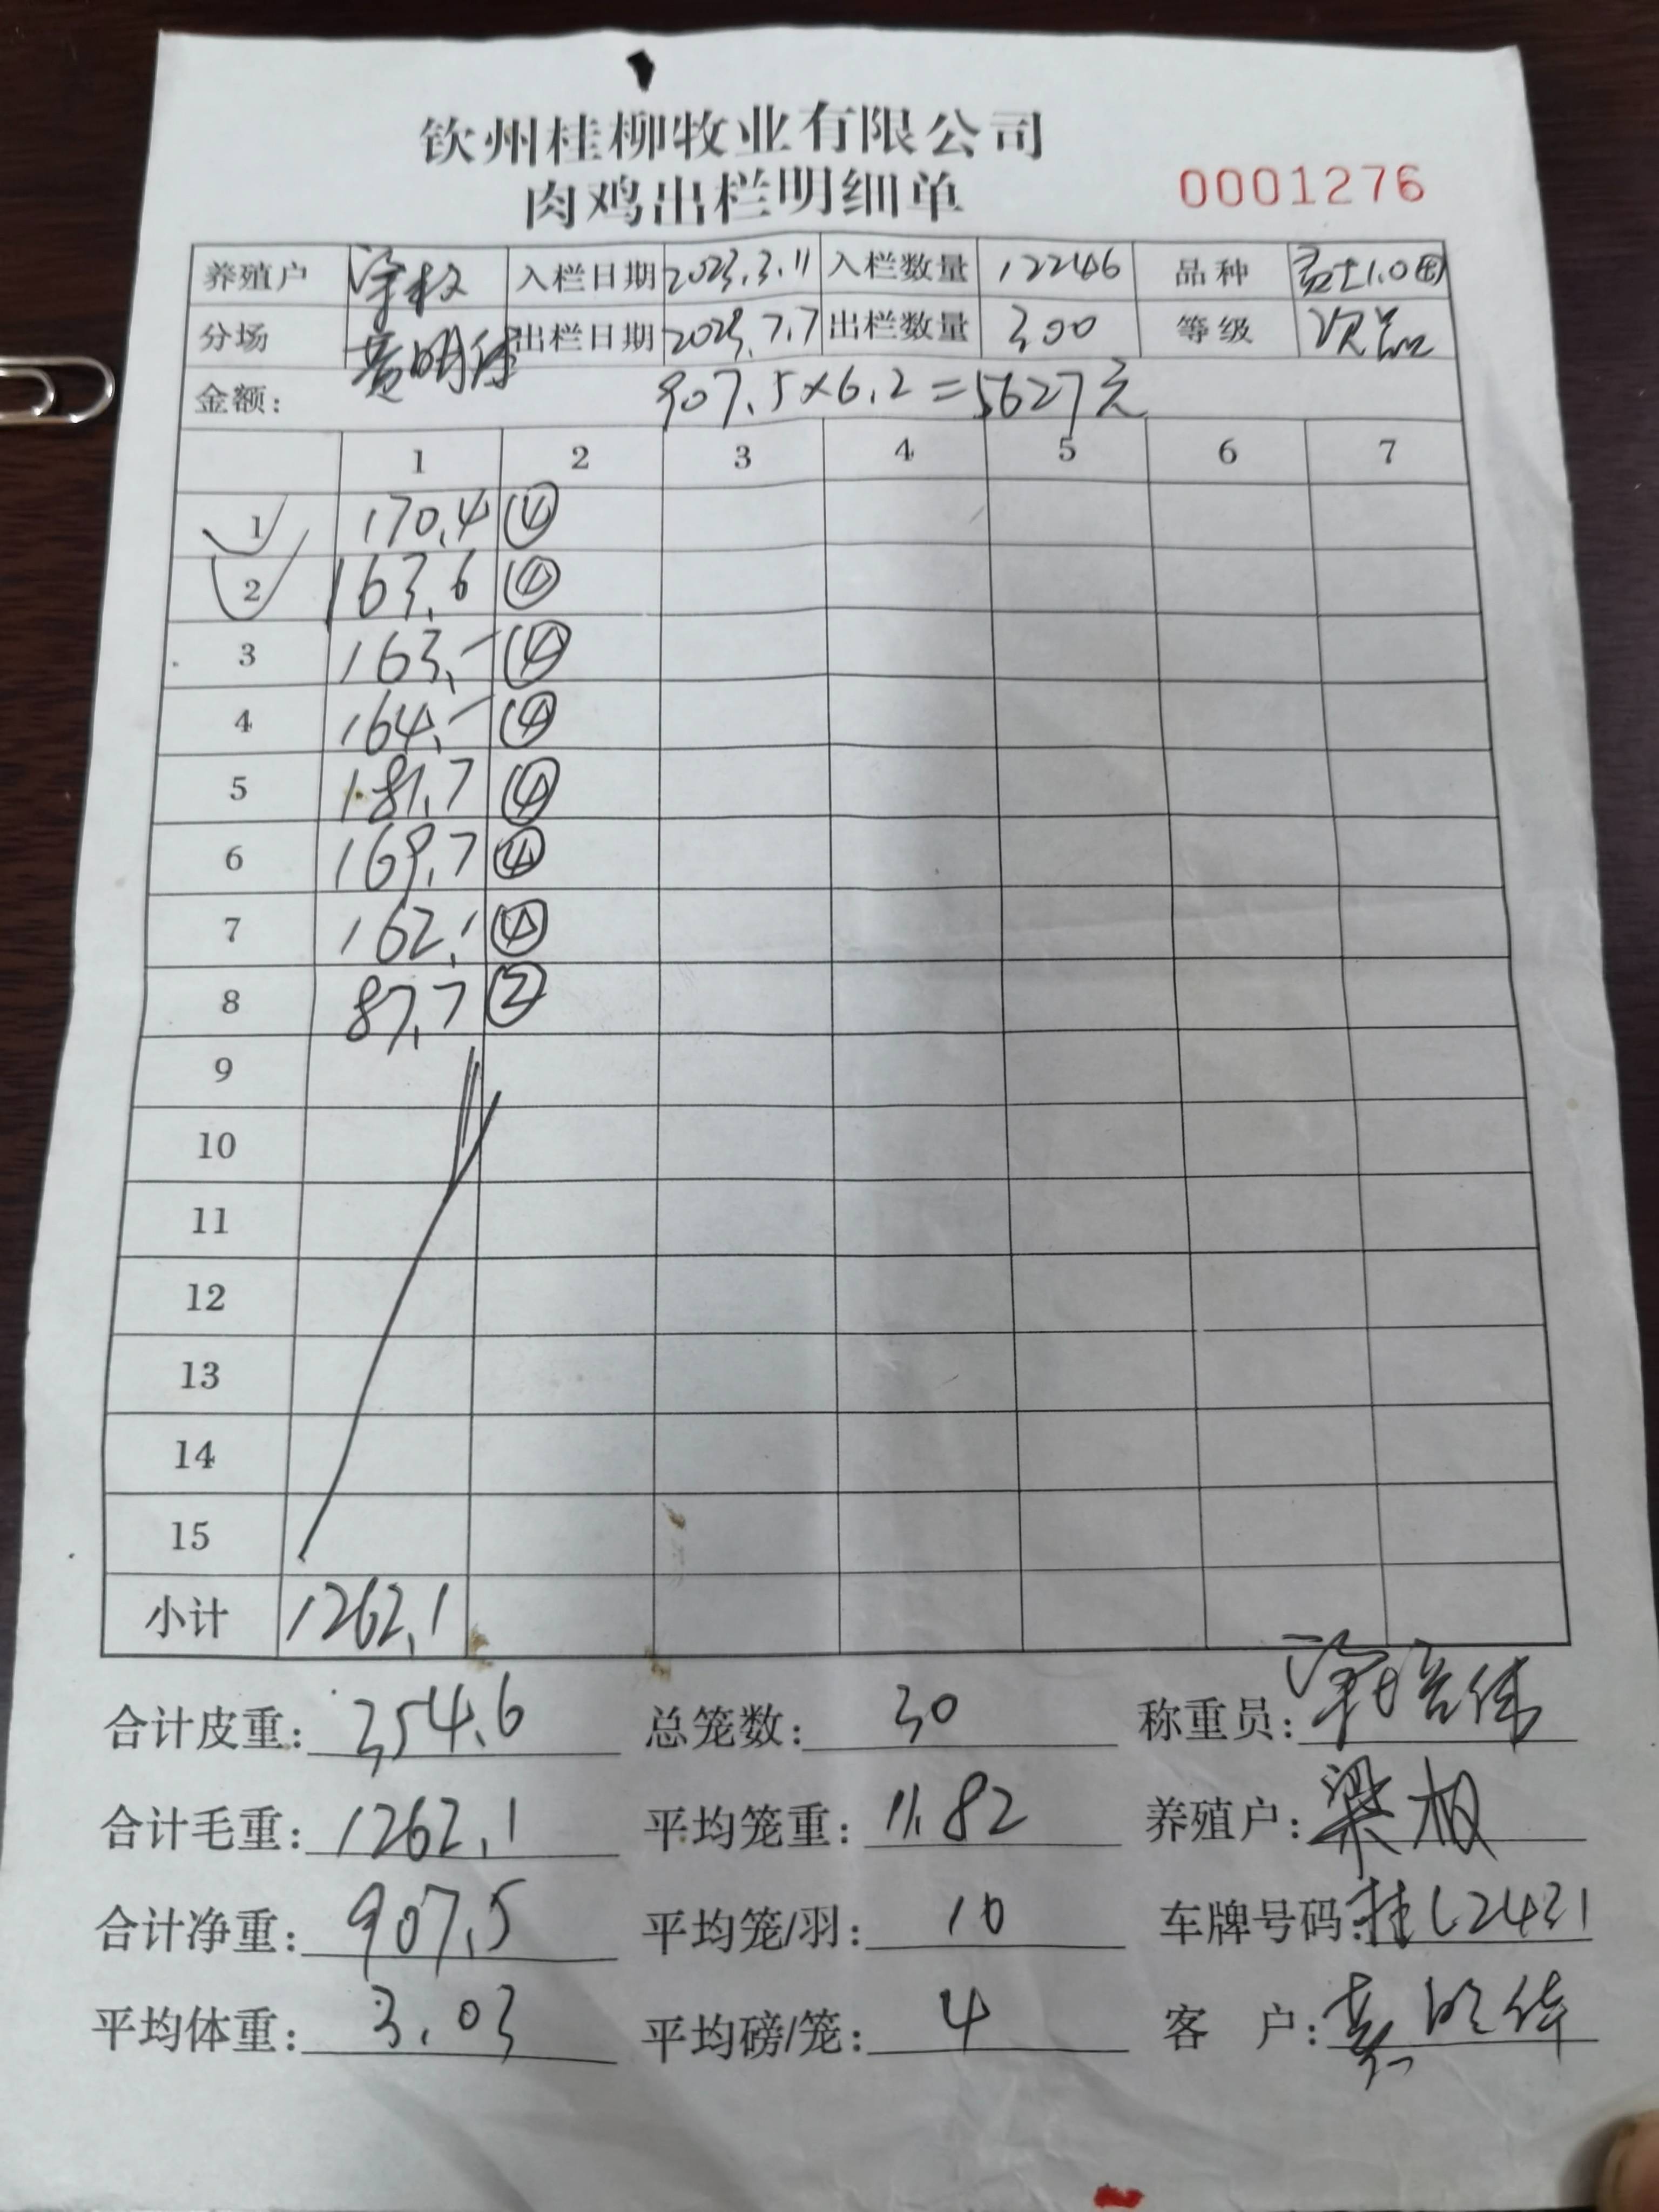 钦州桂柳牧业有限公司
肉鸡出栏明细单
0001276
养殖户 梁权 入栏日期 2023.3.11 入栏数量 12246 品种 土1.0
分场 黄明伟 出栏日期 2023.7.7 出栏数量 300 等级 次品
金额: 907.5×6.2=5627元
1 2 3 4 5 6 7
1 170.4 ④
2 163.6 ④
3 163.- ④
4 164.- ④
5 181.7 ④
6 169.7 ④
7 162.1 ④
8 87.7 ②
9
10
11
12
13
14
15
小计 1262.1
合计皮重: 354.6 总笼数: 30 称重员:
合计毛重: 1262.1 平均笼重: 11.82 养殖户: 梁权
合计净重: 907.5 平均笼/羽: 10 车牌号码: 桂L2431
平均体重: 3.03 平均磅/笼: 4 客 户: 黄明伟